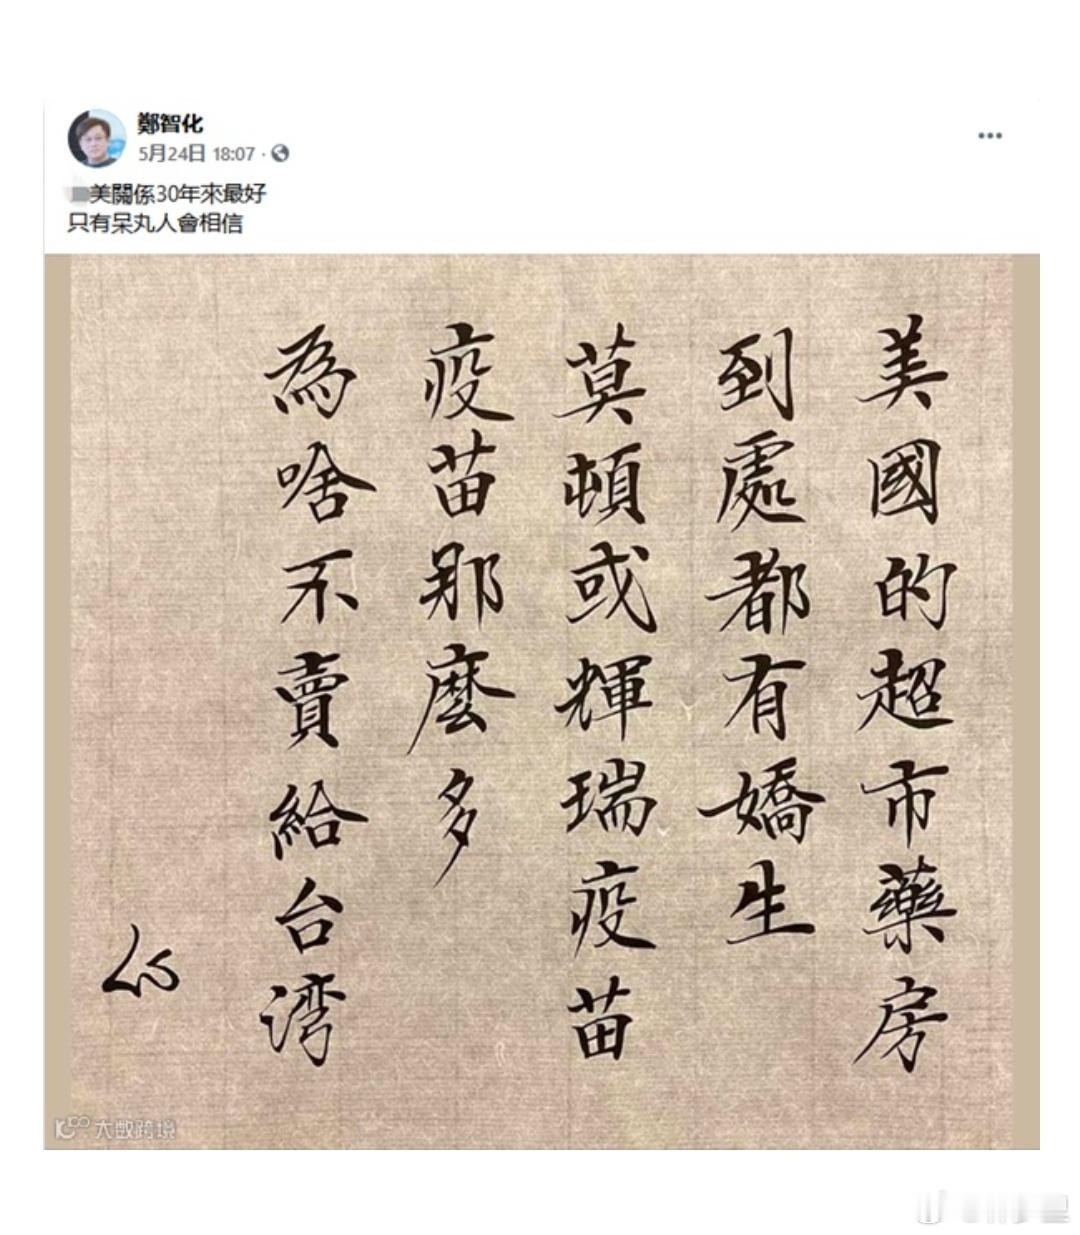 鄭智化
5月24日 18:07
美關係30年來最好
只有呆丸人會相信
美國的超市藥房
到處都有嬌生
莫頓或輝瑞疫苗
疫苗那麼多
為啥不賣給台湾
大数跨境